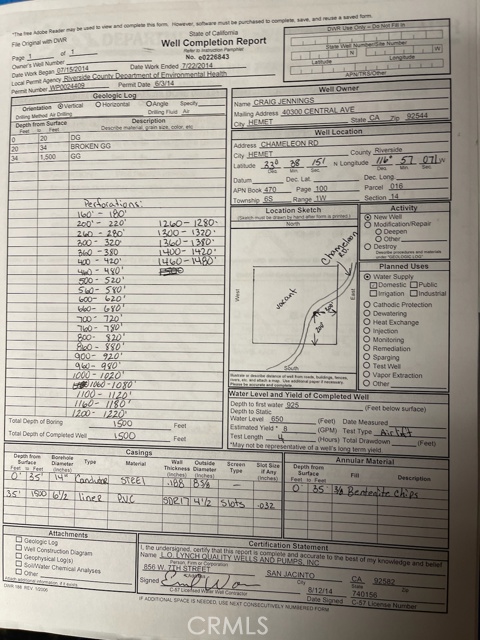 *The free Adobe Reader may be used to view and complete this form. However, software must be purchased to complete, save, and reuse a saved form.
File Original with DWR
State of California
Well Completion Report
Refer to Instruction Pamphlet
No. e0226843
DWR Use Only – Do Not Fill In
State Well Number/Site Number
Latitude
Longitude
APN/TRS/Other
Page 1 of 1
Owner's Well Number
Date Work Began 07/15/2014
Date Work Ended 7/22/2014
Local Permit Agency Riverside County Department of Environmental Health
Permit Number WP0024409
Permit Date 6/3/14
Geologic Log
Orientation Vertical Horizontal Angle Specify
Drilling Method Air Drilling
Drilling Fluid Air
Depth from Surface
Feet to Feet
Description
Describe material, grain size, color, etc
0 20 DG
20 34 BROKEN GG
34 1,500 GG
Perforations:
160' - 180'
200' - 220'
260 - 280'
300 - 320'
360 - 380
400 - 420'
460 - 480'
500 - 520'
560 - 580'
600 - 620'
660 - 680'
700 - 720'
760 - 780'
800 - 820'
860 - 880'
900 - 920'
960 - 980'
1000 - 1020'
1060 - 1080'
1100 - 1120'
1160 - 1180'
1200 - 1220'
1260 - 1280'
1300 - 1320'
1360 - 1380'
1400 - 1420'
1460 - 1480'
Total Depth of Boring 1500 Feet
Total Depth of Completed Well 1500 Feet
Well Owner
Name CRAIG JENNINGS
Mailing Address 40300 CENTRAL AVE
City HEMET State CA Zip 92544
Well Location
Address CHAMELEON RD
City HEMET County Riverside
Latitude 38 15 N Longitude 116° 57 07 W
Deg. Min. Sec. Deg. Min. Sec.
Datum Dec. Lat. Dec. Long.
APN Book 470 Page 100 Parcel 016
Township 6S Range 1W Section 14
Location Sketch
(Sketch must be drawn by hand after form is printed.)
North
West
East
South
vacant
Chameleon Rd
200'
Illustrate or describe distance of well from roads, buildings, fences, rivers, etc. and attach a map. Use additional paper if necessary. Please be accurate and complete.
Activity
New Well
Modification/Repair
Deepen
Other
Destroy
Describe procedures and materials under "GEOLOGIC LOG"
Planned Uses
Water Supply
Domestic Public
Irrigation Industrial
Cathodic Protection
Dewatering
Heat Exchange
Injection
Monitoring
Remediation
Sparging
Test Well
Vapor Extraction
Other
Water Level and Yield of Completed Well
Depth to first water 925 (Feet below surface)
Depth to Static
Water Level 650 (Feet) Date Measured
Estimated Yield* 8 (GPM) Test Type Airlift
Test Length 4 (Hours) Total Drawdown (Feet)
*May not be representative of a well's long term yield
Casings
Depth from Surface Feet to Feet
Borehole Diameter (Inches)
Type
Material
Wall Thickness (Inches)
Outside Diameter (Inches)
Screen Type
Slot Size if Any (Inches)
0' 35' 14" Conductor STEEL .188 8 5/8
35' 1500 6 1/2 liner PVC SDR17 4 1/2 Slots .032
Annular Material
Depth from Surface Feet to Feet
Fill
Description
0 35 3/8 Bentenite Chips
Attachments
Geologic Log
Well Construction Diagram
Geophysical Log(s)
Soil/Water Chemical Analyses
Other
Attach additional information, if it exists
DWR 188 REV. 1/2006
Certification Statement
I, the undersigned, certify that this report is complete and accurate to the best of my knowledge and belief
Name L.O. LYNCH QUALITY WELLS AND PUMPS, INC
Person, Firm or Corporation
656 W. 7TH STREET SAN JACINTO CA 92582
City State Zip
Signed
C-57 Licensed Water Well Contractor
8/12/14 740156
Date Signed C-57 License Number
IF ADDITIONAL SPACE IS NEEDED, USE NEXT CONSECUTIVELY NUMBERED FORM
CRMLS